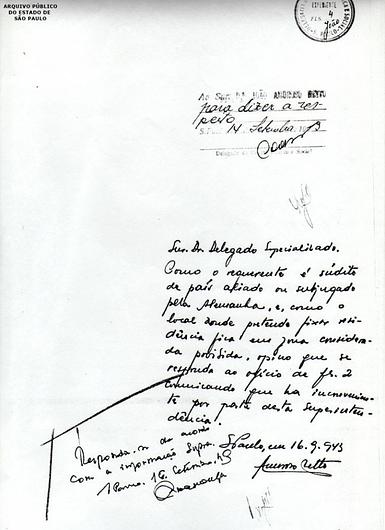 ARQUIVO PÚBLICO
DO ESTADO DE
SÃO PAULO
EXPEDIENTE
4
FLS.
João
Ao Snr. Dr. João
para dizer a res-
peito
S. 14 Setembro
Delegado
Snr. Dr. Delegado Especialisado.
Como o requerente é súdito
de país aliado ou subjugado
pela Alemanha, e, como o
local aonde pretende fixar resi-
dência fica em zona considera-
da proibida, opino que se
responda ao ofício de fs. 2
comunicando que ha inconvenien-
te por parte desta Superinten-
dência.
S. Paulo, em 16.9.943
Amoroso Netto
Responda-se de acordo
com a informação supra.
S. Paulo. 16. Setembro. 43